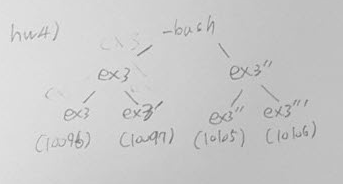 hw4) -bash
ex3 ex3''
ex3 ex3' ex3'' ex3'''
(10096) (10097) (10105) (10106)